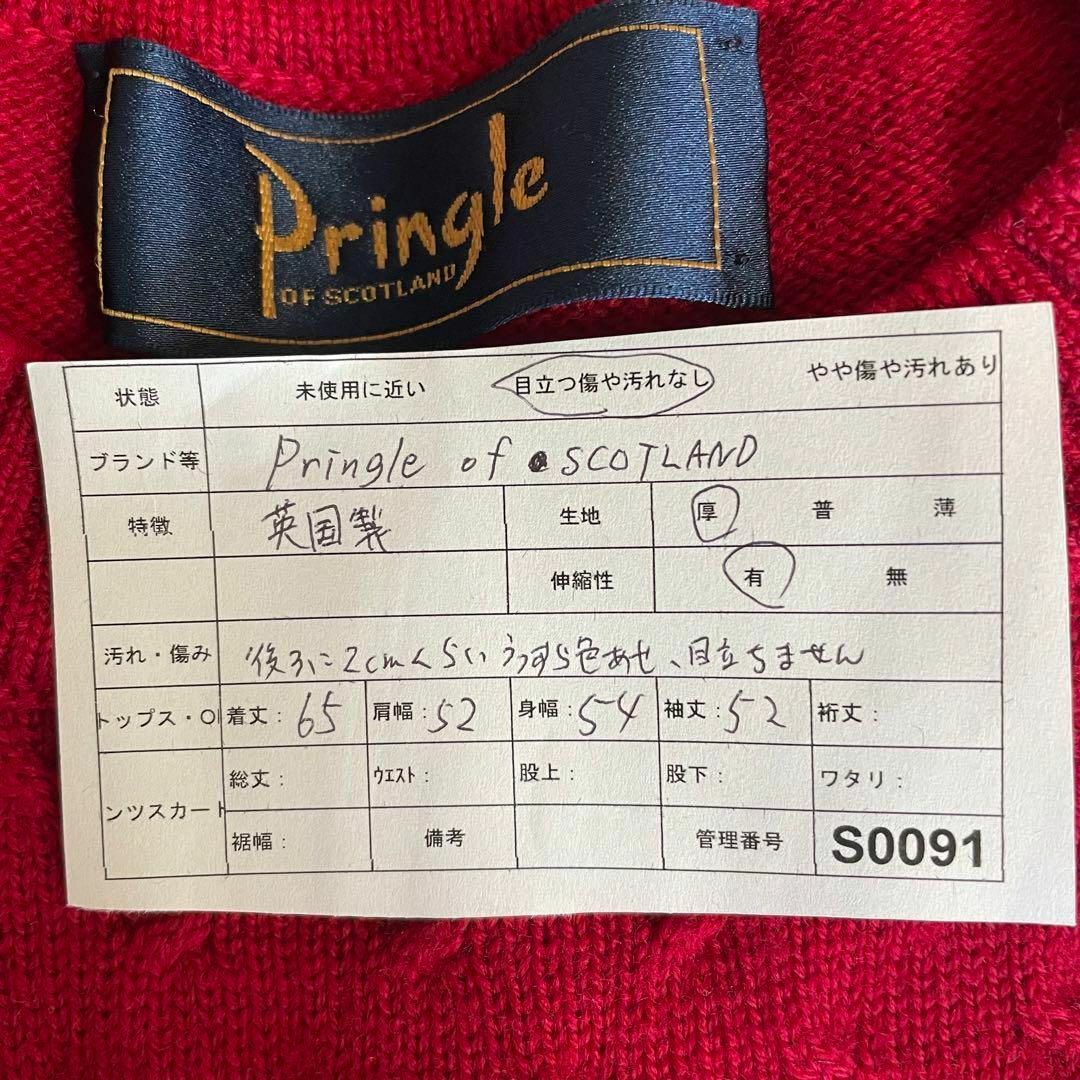 Pringle
OF SCOTLAND
状態 未使用に近い 目立つ傷や汚れなし やや傷や汚れあり
ブランド等 Pringle of SCOTLAND
特徴 英国製 生地 厚 普 薄
伸縮性 有 無
汚れ・傷み 後ろに2cmくらいうっすら色あせ、目立ちません
トップス・O 着丈: 65 肩幅: 52 身幅: 54 袖丈: 52 裄丈:
ンツスカート 総丈: ウエスト: 股上: 股下: ワタリ:
裾幅: 備考 管理番号 S0091